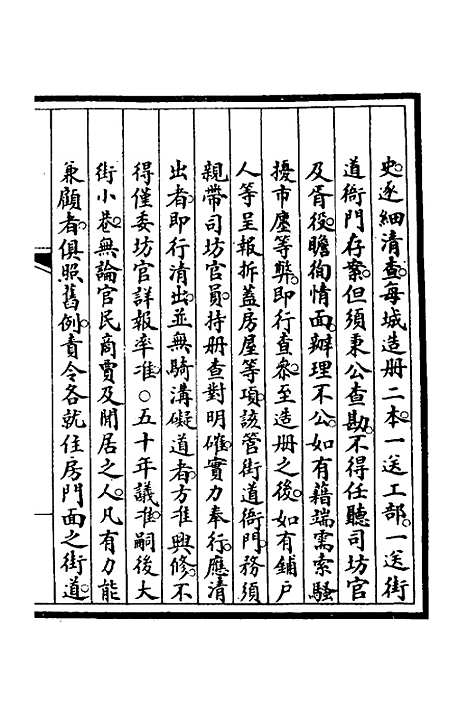 史。逐細清查。每城造册二本。一送工部。一送街
道衙門存案。但須秉公查勘。不得任聽司坊官
及胥役。瞻徇情面。辦理不公。如有藉端需索騷
擾市廛等弊。即行查叅。至造册之後。如有鋪户
人等呈報拆蓋房屋等項。該管街道衙門。務須
親帶司坊官員。持册查對明確。實力奉行。應清
出者。即行清出。並無騎溝礙道者。方准興修。不
得僅委坊官詳報率准。○五十年議准。嗣後大
街小巷。無論官民商賈及閒居之人。凡有力能
兼顧者。俱照舊例。責令各就住房門面之街道。